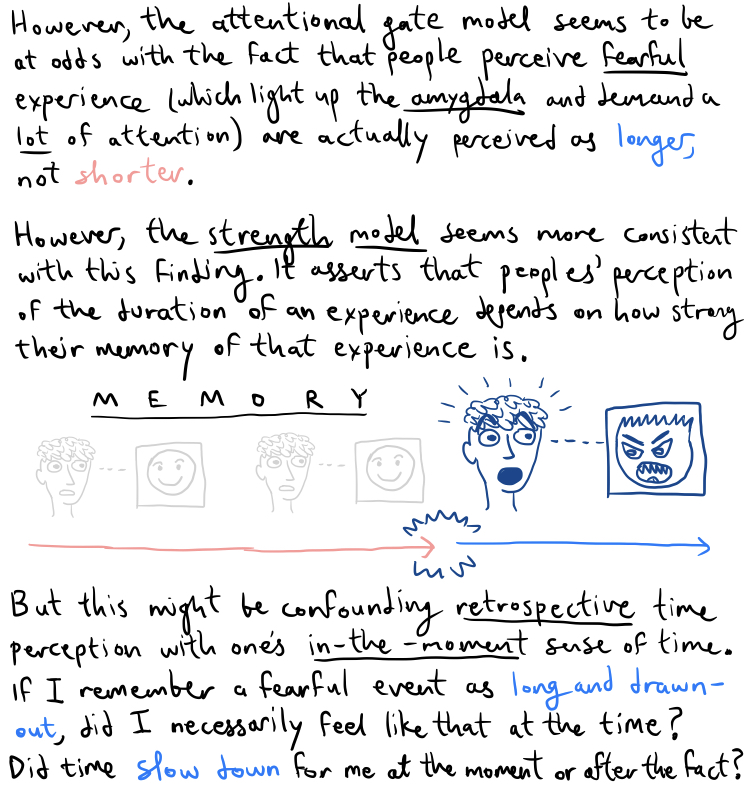 However, the attentional gate model seems to be
at odds with the fact that people perceive fearful
experience (which light up the amygdala and demand a
lot of attention) are actually perceived as longer,
not shorter.
However, the strength model seems more consistent
with this finding. It asserts that peoples' perception
of the duration of an experience depends on how strong
their memory of that experience is.
M E M O R Y
But this might be confounding retrospective time
perception with one's in-the-moment sense of time.
If I remember a fearful event as long and drawn-
out, did I necessarily feel like that at the time?
Did time slow down for me at the moment or after the fact?